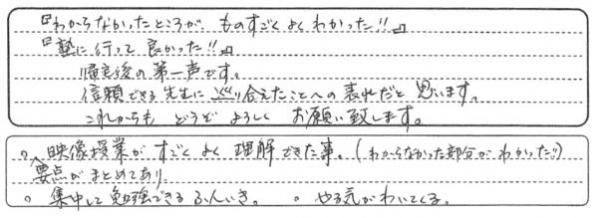 『わからなかったところが、ものすごくよくわかった!!』
『塾に行って良かった!!』
帰宅後の第一声です。
信頼できる先生に巡り合えたことへの表れだと思います。
これからもどうぞよろしくお願い致します。
○映像授業がすごくよく理解できた事。(わからなかった部分がわかった!!)
要点がまとめてあり、
○集中して勉強できるふんいき。 ○やる気がわいてくる。